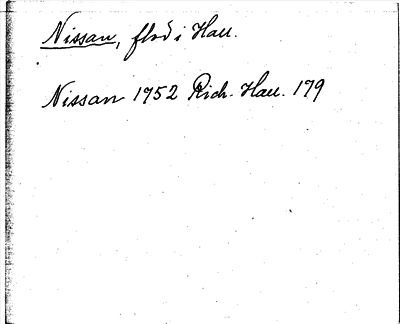 Nissan, flod i Hall.
Nissan 1752 Rich. Hall. 179